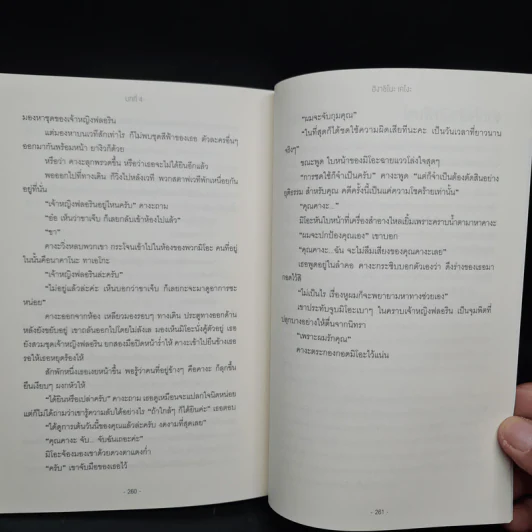 มองหาชุดของเจ้าหญิงฟลอริน
แต่มองหาบนเวทีสักเท่าไร ก็ไม่พบชุดสีฟ้าของเธอ ตัวละครอื่นๆ
ออกมากันพร้อมหน้า ยาจิวก็ด้วย
หรือว่า คางะลุกพรวดขึ้น หรือว่าเธอจะไม่ได้ยินอีกแล้ว
พอออกไปที่ทางเดิน ก็วิ่งไปหลังเวที พวกสตาฟเวทีพักเหนื่อยกัน
อยู่ที่นั่น
“เจ้าหญิงฟลอรินอยู่ไหนครับ” คางะถาม
“อ๋อ เห็นว่าขาเจ็บ ก็เลยกลับเข้าห้องไปแล้ว”
“ขา”
คางะวิ่งหลบพวกเขา กระโจนเข้าไปในห้องของพวกมิโอะ คนที่อยู่
ในนั้นคือนาคาโนะ ทาเอโกะ
“เจ้าหญิงฟลอรินล่ะครับ”
“ไม่อยู่แล้วค่ะ เห็นบอกว่าขาเจ็บ ก็เลยกะจะมาดูอาการซะ
หน่อย”
คางะออกจากห้อง เหลียวมองรอบๆ ทางเดิน ประตูทางออกด้าน
หลังยังขยับอยู่ เขาถลันออกไปโดยไม่ลังเล มองเห็นมิโอะนั่งคู้ตัวอยู่ เธอ
ยังสวมชุดเจ้าหญิงฟลอริน ยกสองมือปิดหน้าร่ำไห้ คางะเข้าไปยืนข้างเธอ
รอให้เธอหยุดร้องไห้
สักพักหนึ่งเธอเงยหน้าขึ้น พอรู้ว่าคนที่อยู่ข้างๆ คือคางะ ก็ลุกขึ้น
ยืนเงียบๆ ผงกหัวให้
“ได้ยินหรือเปล่าครับ” คางะถาม เธอดูเหมือนจะแปลกใจนิดหน่อย
แต่ก็ไม่ได้ถามว่าเขารู้ความลับได้อย่างไร “ถ้าใกล้ๆ ก็ได้ยินค่ะ” เธอตอบ
“ได้ดูการเต้นวันนี้ของคุณแล้วล่ะครับ งดงามที่สุดเลย”
“คุณคางะ จับ... จับฉันเถอะค่ะ”
มิโอะจ้องมองเขาด้วยดวงตาแดงก่ำ
“ครับ” เขาจับมือของเธอไว้
- 260 -
“ผมจะจับกุมคุณ”
“ในที่สุดก็ได้ชดใช้ความผิดเสียทีนะคะ เป็นวันเวลาที่ยาวนาน
จริงๆ”
ขณะพูด ใบหน้าของมิโอะฉายแววโล่งใจสุดๆ
“การชดใช้ก็จำเป็นครับ” คางะพูด “แต่ก็จำเป็นต้องตัดสินอย่าง
ยุติธรรม สำหรับคุณ คดีครั้งนี้เป็นแค่ความโชคร้ายเท่านั้น”
“คุณคางะ...”
มิโอะหันใบหน้าที่เครื่องสำอางไหลเยิ้มเพราะคราบน้ำตามาหาคางะ
“ผมจะปกป้องคุณเอง” เขาบอก
“คุณคางะ...ฉัน จะไม่ลืมเสียงของคุณคางะเลย”
เธอพูดอยู่ในลำคอ คางะกระซิบบอกตัวเองว่า ดึงร่างของเธอมา
กอดไว้สิ
“ไม่เป็นไร เรื่องหูผมก็จะพยายามหาทางช่วยเอง”
เขาประทับจูบมิโอะเบาๆ ในคราบเจ้าหญิงฟลอริน เป็นจุมพิตที่
ปลุกนางอย่างให้ตื่นจากนิทรา
“เพราะผมรักคุณ”
คางะตระกองกอดมิโอะไว้แน่น
- 261 -